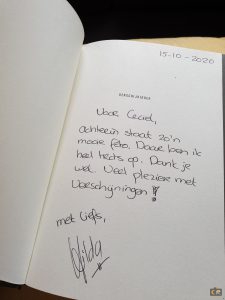 15-10-2020
Voor Ceciel,
achterin staat zo'n
mooie foto. Daar ben ik
heel trots op. Dank je
wel. Veel plezier met
Verschijningen!
met liefs,
Hilda